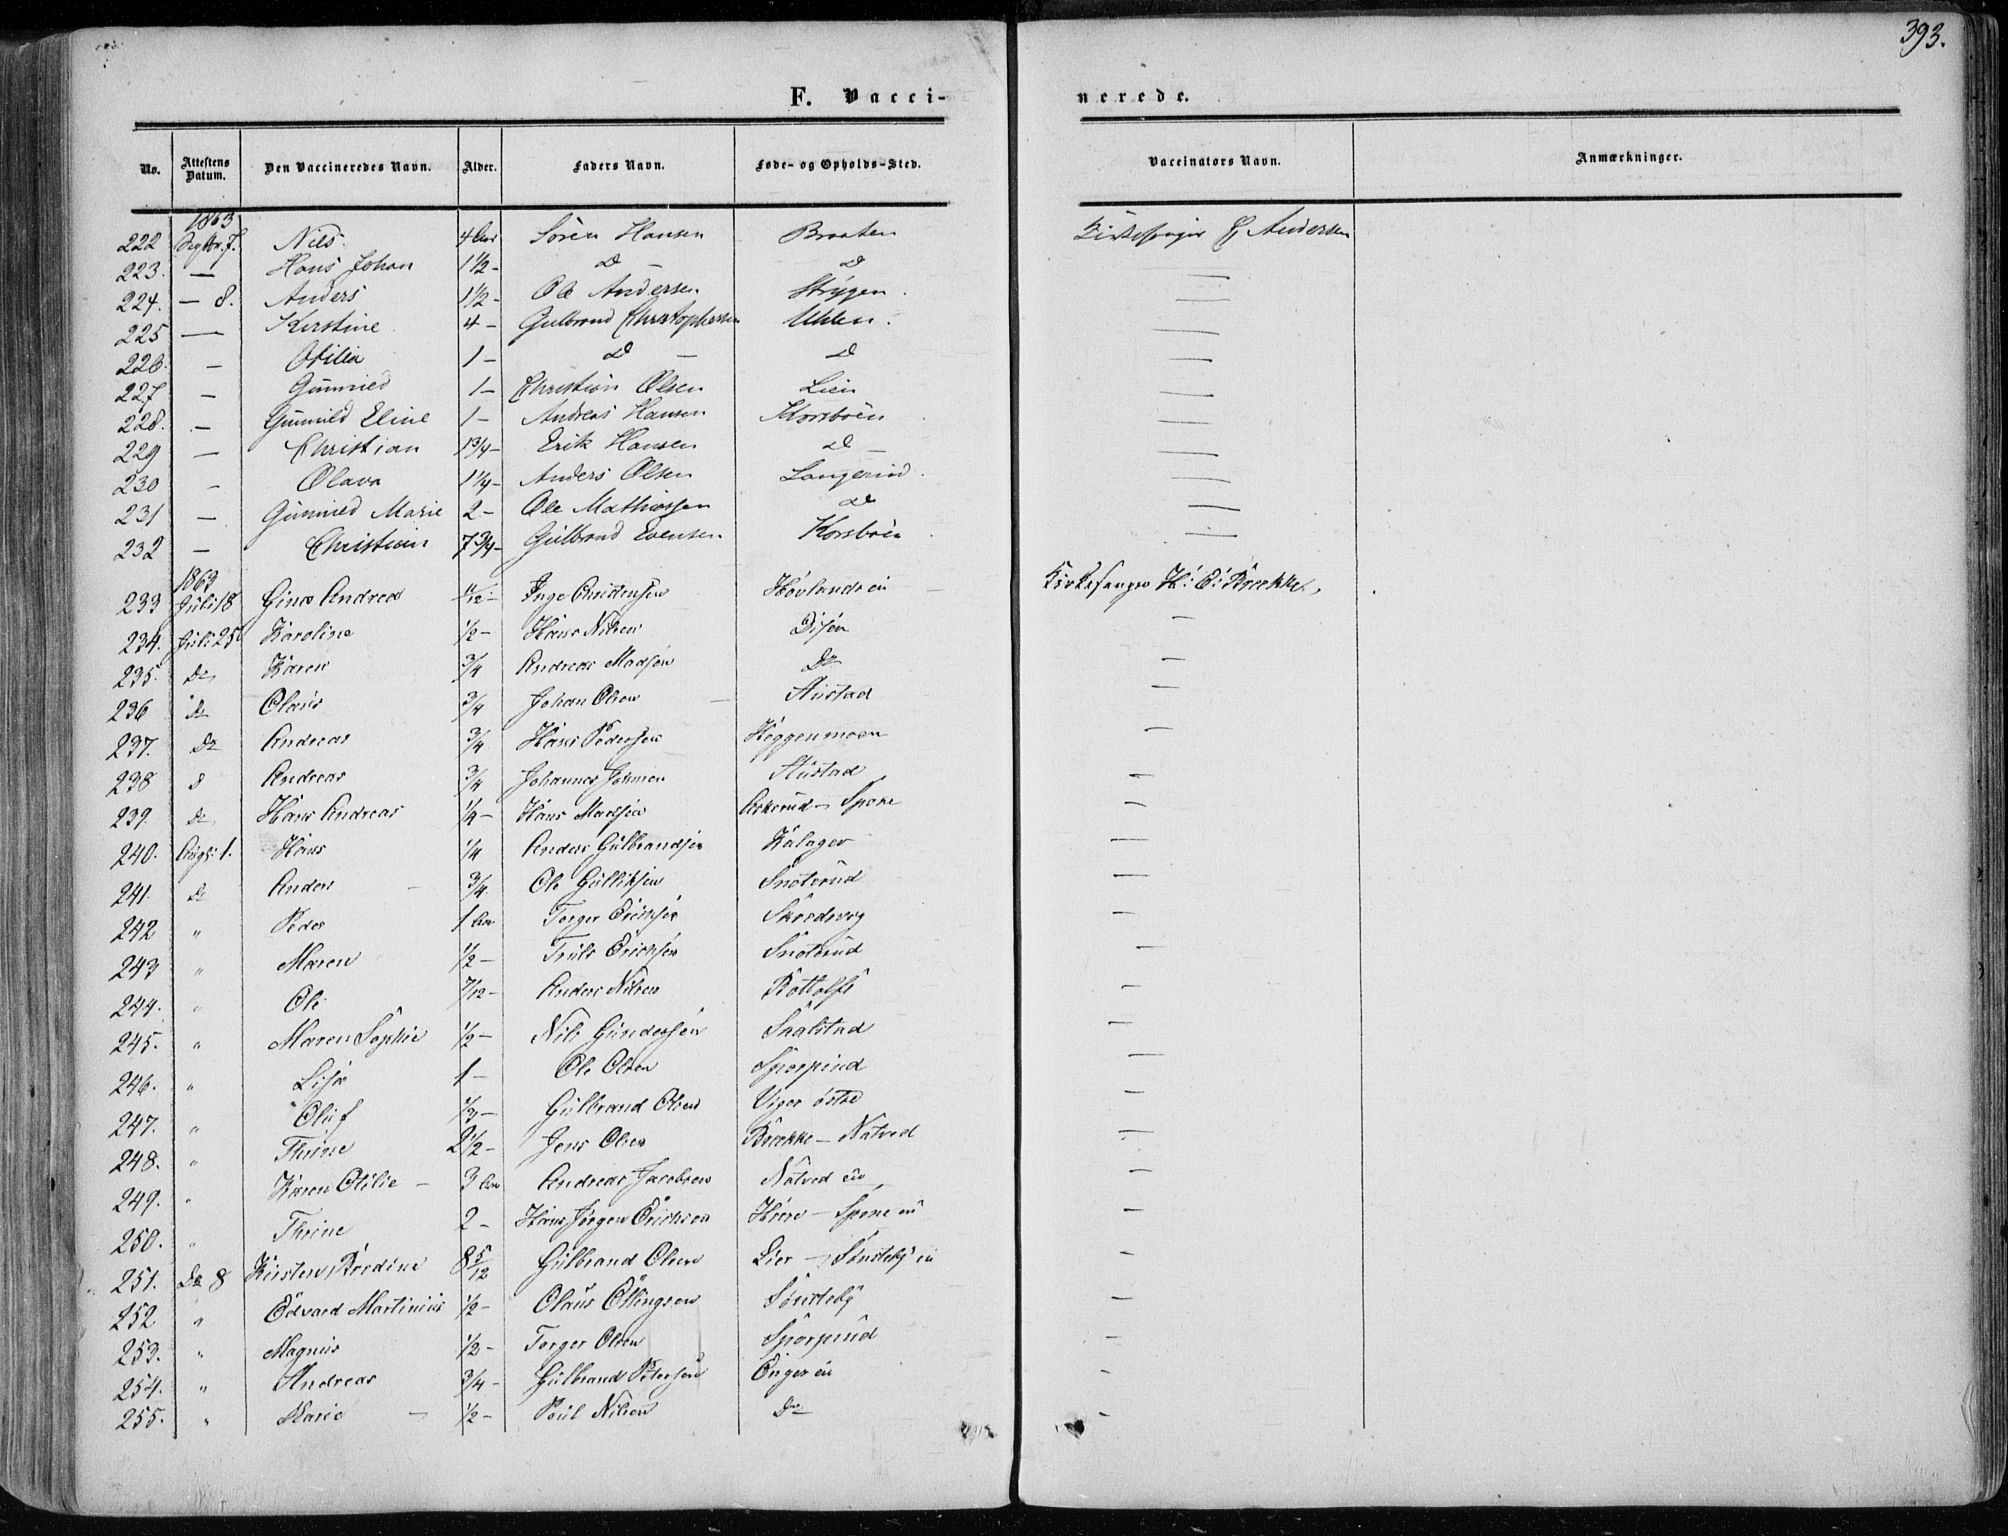 393.
F. Vaccinerede.
No. Attestens Datum. Den Vaccineredes Navn. Alder. Faders Navn. Føde- og Opholds-Sted. Vaccinators Navn. Anmærkninger.
1863
222 Septbr. 7. Nils 4 Aar Søren Hansen Braaten Kirkesanger Andersen
223. — Hans Johan 1½ — D — D —
224. — 8. Anders 1½ — Ole Andersen Strygen. —
225 — Kirstine 4 — Gulbrand Christophersen Uhlen. —
226. — Otilia 1 — D — D —
227 — Gunnild 1 — Christian Olsen Lien —
228. — Gunnild Eline 1 — Andreas Hansen Korsbøen —
229 — Christian 1¾ — Erik Hansen D — —
230 — Olava 1¼ — Anders Olsen Langerud. —
231 — Gunnild Marie 2 — Ole Mathiassen D —
232 — Christian 7¾ — Gulbrand Evensen Korsbøen —
1863
233 Juli 18 Gina Andrea Inge Christensen Hovlandseie Kirkesanger H: E: Brække,
234. Juli 25 Karoline ½ — Hans Nilsen Disen —
235. Do Karen ¾ Andreas Madsen Do —
236 Do Olaus ¾ Johan Olsen Stustad —
237. Do Andreas ¾ Hans Pedersen Heggenmoen —
238 Andreas ¾ Johannes Stustad —
239. Do Hans Andreas ¼ — Hans Madsen Askerud — Spone —
240. Augs: 1. Hans ¼ Anders Gulbrandsen Kalager —
241. Do Anders ¾ Ole Gulliksen Snoterud —
242 " Peder 1 Aar Torger Ericksen Skredsvig —
243 " Maren ½ — Truls Ericksen Snoterud —
244. " Ole 7/12 — Anders Nilsen Rottolfs —
245. " Maren Sophie ½ — Nils Gundersen Saalstad —
246. " Lisa 1 — Ole Olsen Sporpind —
247. " Oluf ⅓ — Gulbrand Olsen Viger østre —
248. " Thrine 2½ — Jens Olsen Brække — Natved —
249. " Karen Otilie — 3 Aar Andreas Jacobsen Natved eie —
250. " Thrine 2 — Hans Jørgen Ericksen — Spone ei —
251. Do 8 Kirsten Bredine 8 5/12 Gulbrand Olsen Lier — Sønsteby ei —
252 " Edvard Martinius ½ — Olaus Ellingsen Sønsteby —
253. " Magnus ½ — Torger Olsen Sporpind —
254. " Andreas ¾ — Gulbrand Petersen Enger ei —
255. " Marie — ½ — Poul Nilsen Do —